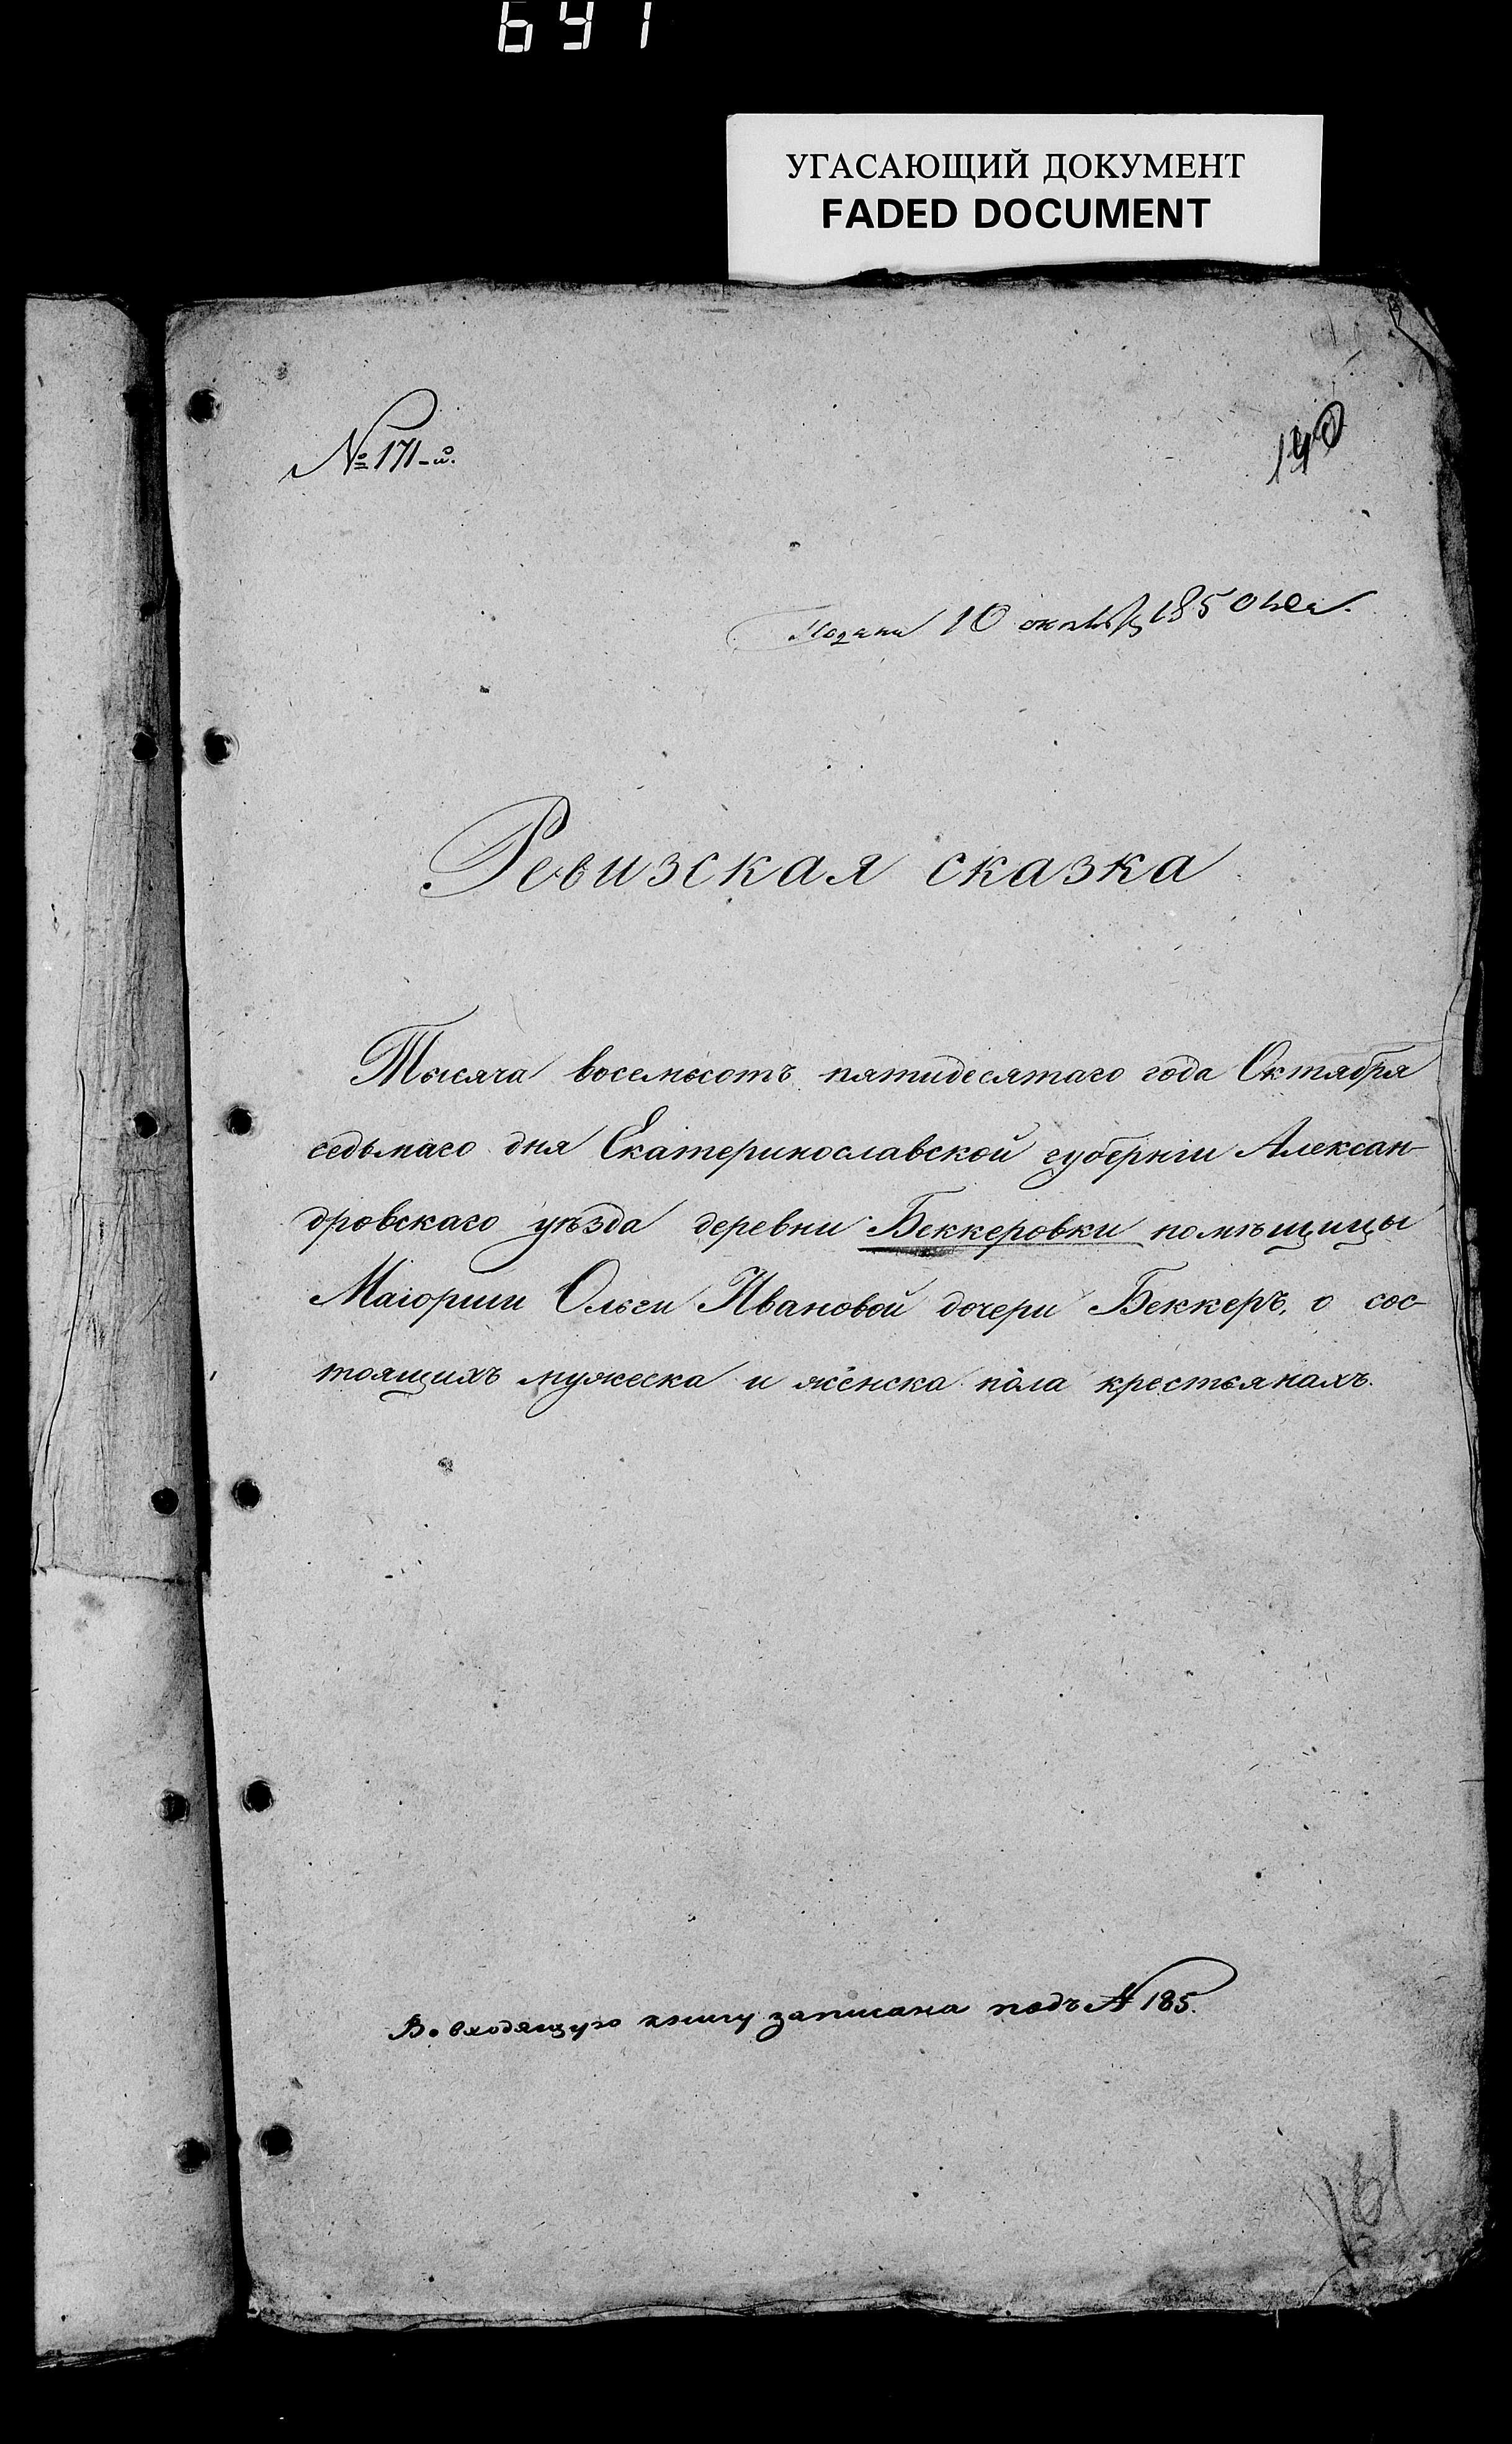 641
УГАСАЮЩИЙ ДОКУМЕНТ
FADED DOCUMENT
№ 171-й.
Подана 10 октября 1850 года.
Ревизская сказка
Тысяча восемьсотъ пятидесятаго года Октября
седьмаго дня Екатеринославской губерніи Алексан-
дровскаго уѣзда деревни Беккеровки помѣщицы
Маіорши Ольги Ивановой дочери Беккеръ, о сос-
тоящихъ мужеска и женска пола крестьянахъ.
Во входящую книгу записана подъ № 185.
161